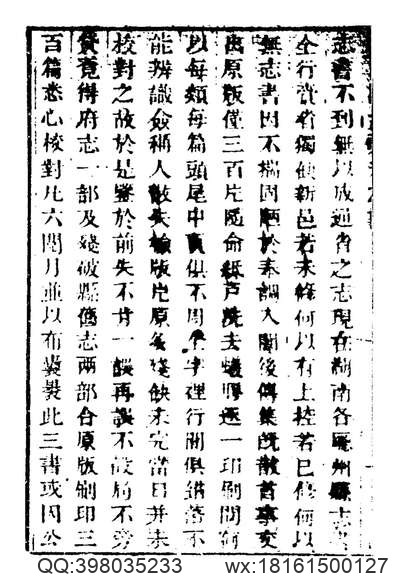 志書不到無以成通省之志現在湖南各廳州縣志書
全行賷省獨使新邑若未修何以有上控若已修何以
無志書因不揣固陋於奉調入闈後傳集既散首事交
出原版僅三百片隨命紙戶洗去蟻逐一印刷間有
以每類每篇頭尾中俱不周字裡行間俱錯落不
能辨識僉稱人散失版片原多殘缺未完當日并未
校對之故於是鑒於前失不肯一誤再誤不設局不旁
貸覓得府志一部及殘破縣舊志兩部合原版刷印三
百篇悉心校對凡六閱月並以布囊裂此三書或因公
QQ:398035233 wx:18161500127